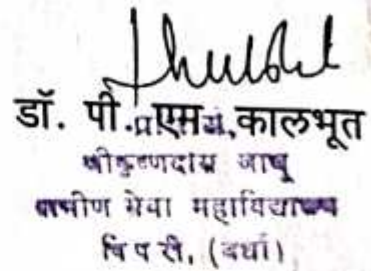 डॉ. पी. एम. कालभूत
प्राचार्य,
श्रीकृष्णदास जाजू
ग्रामीण सेवा महाविद्यालय
पिपरी, (वर्धा)